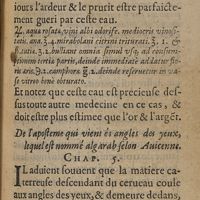 iours l'ardeur & le prurit estre parfaictemēt
gueri par ceste eau.
♃. aquæ rosatæ, vini albi odorife. mediocris vinositatis.
ana. ʒ.4. mirabolani citrini triturati. ʒ.1.
tutiæ. ʒ.1. bulliant omnia simul vsque ad consumptionem
tertiæ partis, deinde immediate ad datur
ʒ.2. camphoræ ʒ.1. deinde reseruetur in vase
vitreo bene obturato.
Et notez que ceste eau est precieuse dessus
toute autre medecine en ce cas, &
doit estre plus estimee que l'or & l'argēt.
De l'aposteme qui vient és angles des yeux,
lequel est nommé alg arab selon Auicenne.
CHAP. 5.
IL aduient souuent que la matiere caterreuse
descendant du cerueau coule
aux angles des yeux, & demeure dedans,